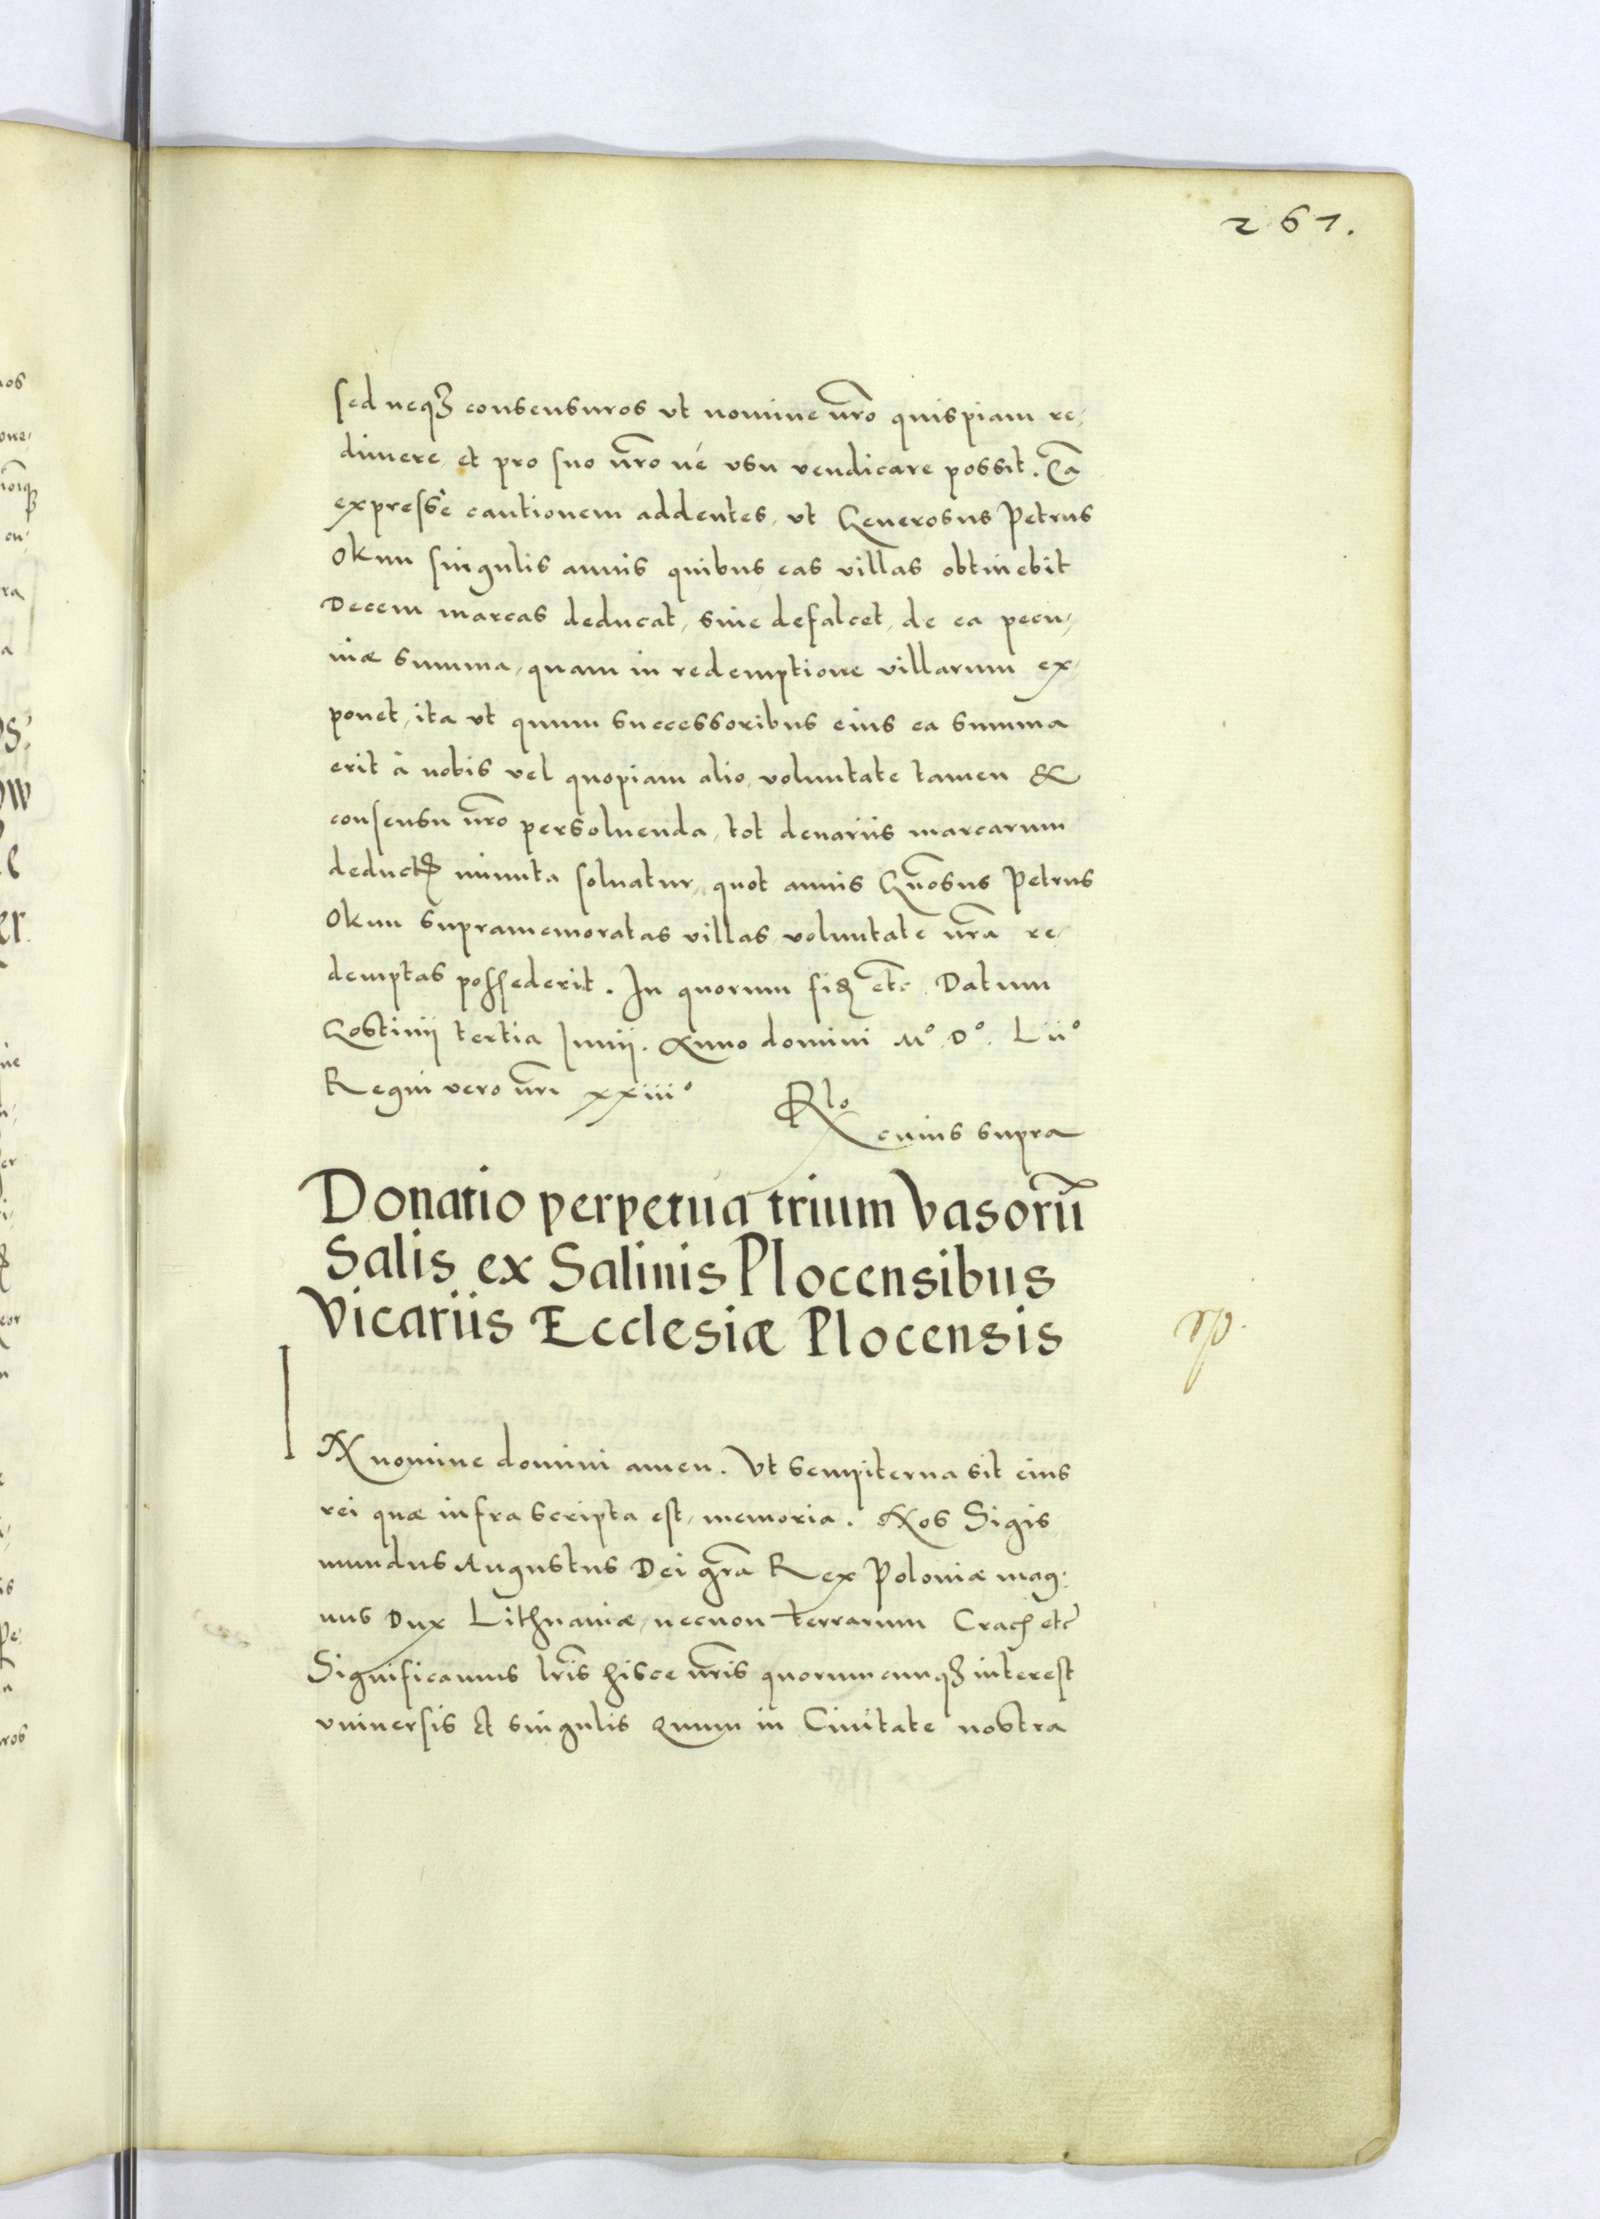 261.
sed neqꝫ consensuros vt nomine nr̃o quispiam re-
dimere, et pro suo nr̃o ué vsu vendicare possit. Eã
expressè cautionem addentes, vt Generosus Petrus
Okun singulis annis quibus eas villas obtinebit
Decem marcas deducat, siue defalcet, de ea pecu-
niæ summa, quam in redemptione villarum ex-
ponet, ita vt quum successoribus eius ea summa
erit à nobis vel quopiam alio, voluntate tamen &
consensu nr̃o persoluenda, tot denariis marcarum
minuta soluatur, quot annis Gñosus Petrus
Okun supramemoratas villas voluntate nr̃a re-
demptas possederit. In quorum etc̃. Datum
Gostinij tertia Junij. Anno domini M°. D°. Lii°
Regni vero nr̃i xxiii°
Rlo
cuius supra
Donatio perpetua trium vasorũ
Salis ex Salinis Plocensibus
Vicariis Ecclesiæ Plocensis
IN nomine domini amen. Vt sempiterna sit eius
rei quæ infra scripta est, memoria. Nos Sigis
mundus Augustus Dei gr̃a Rex Poloniæ mag-
nus Dux Lithuaniæ, necnon terrarum Crac̃ etc̃
Significamus lr̃is hisce nr̃is quorumcunqꝫ interest
vniuersis et singulis Quum in Ciuitate nostra